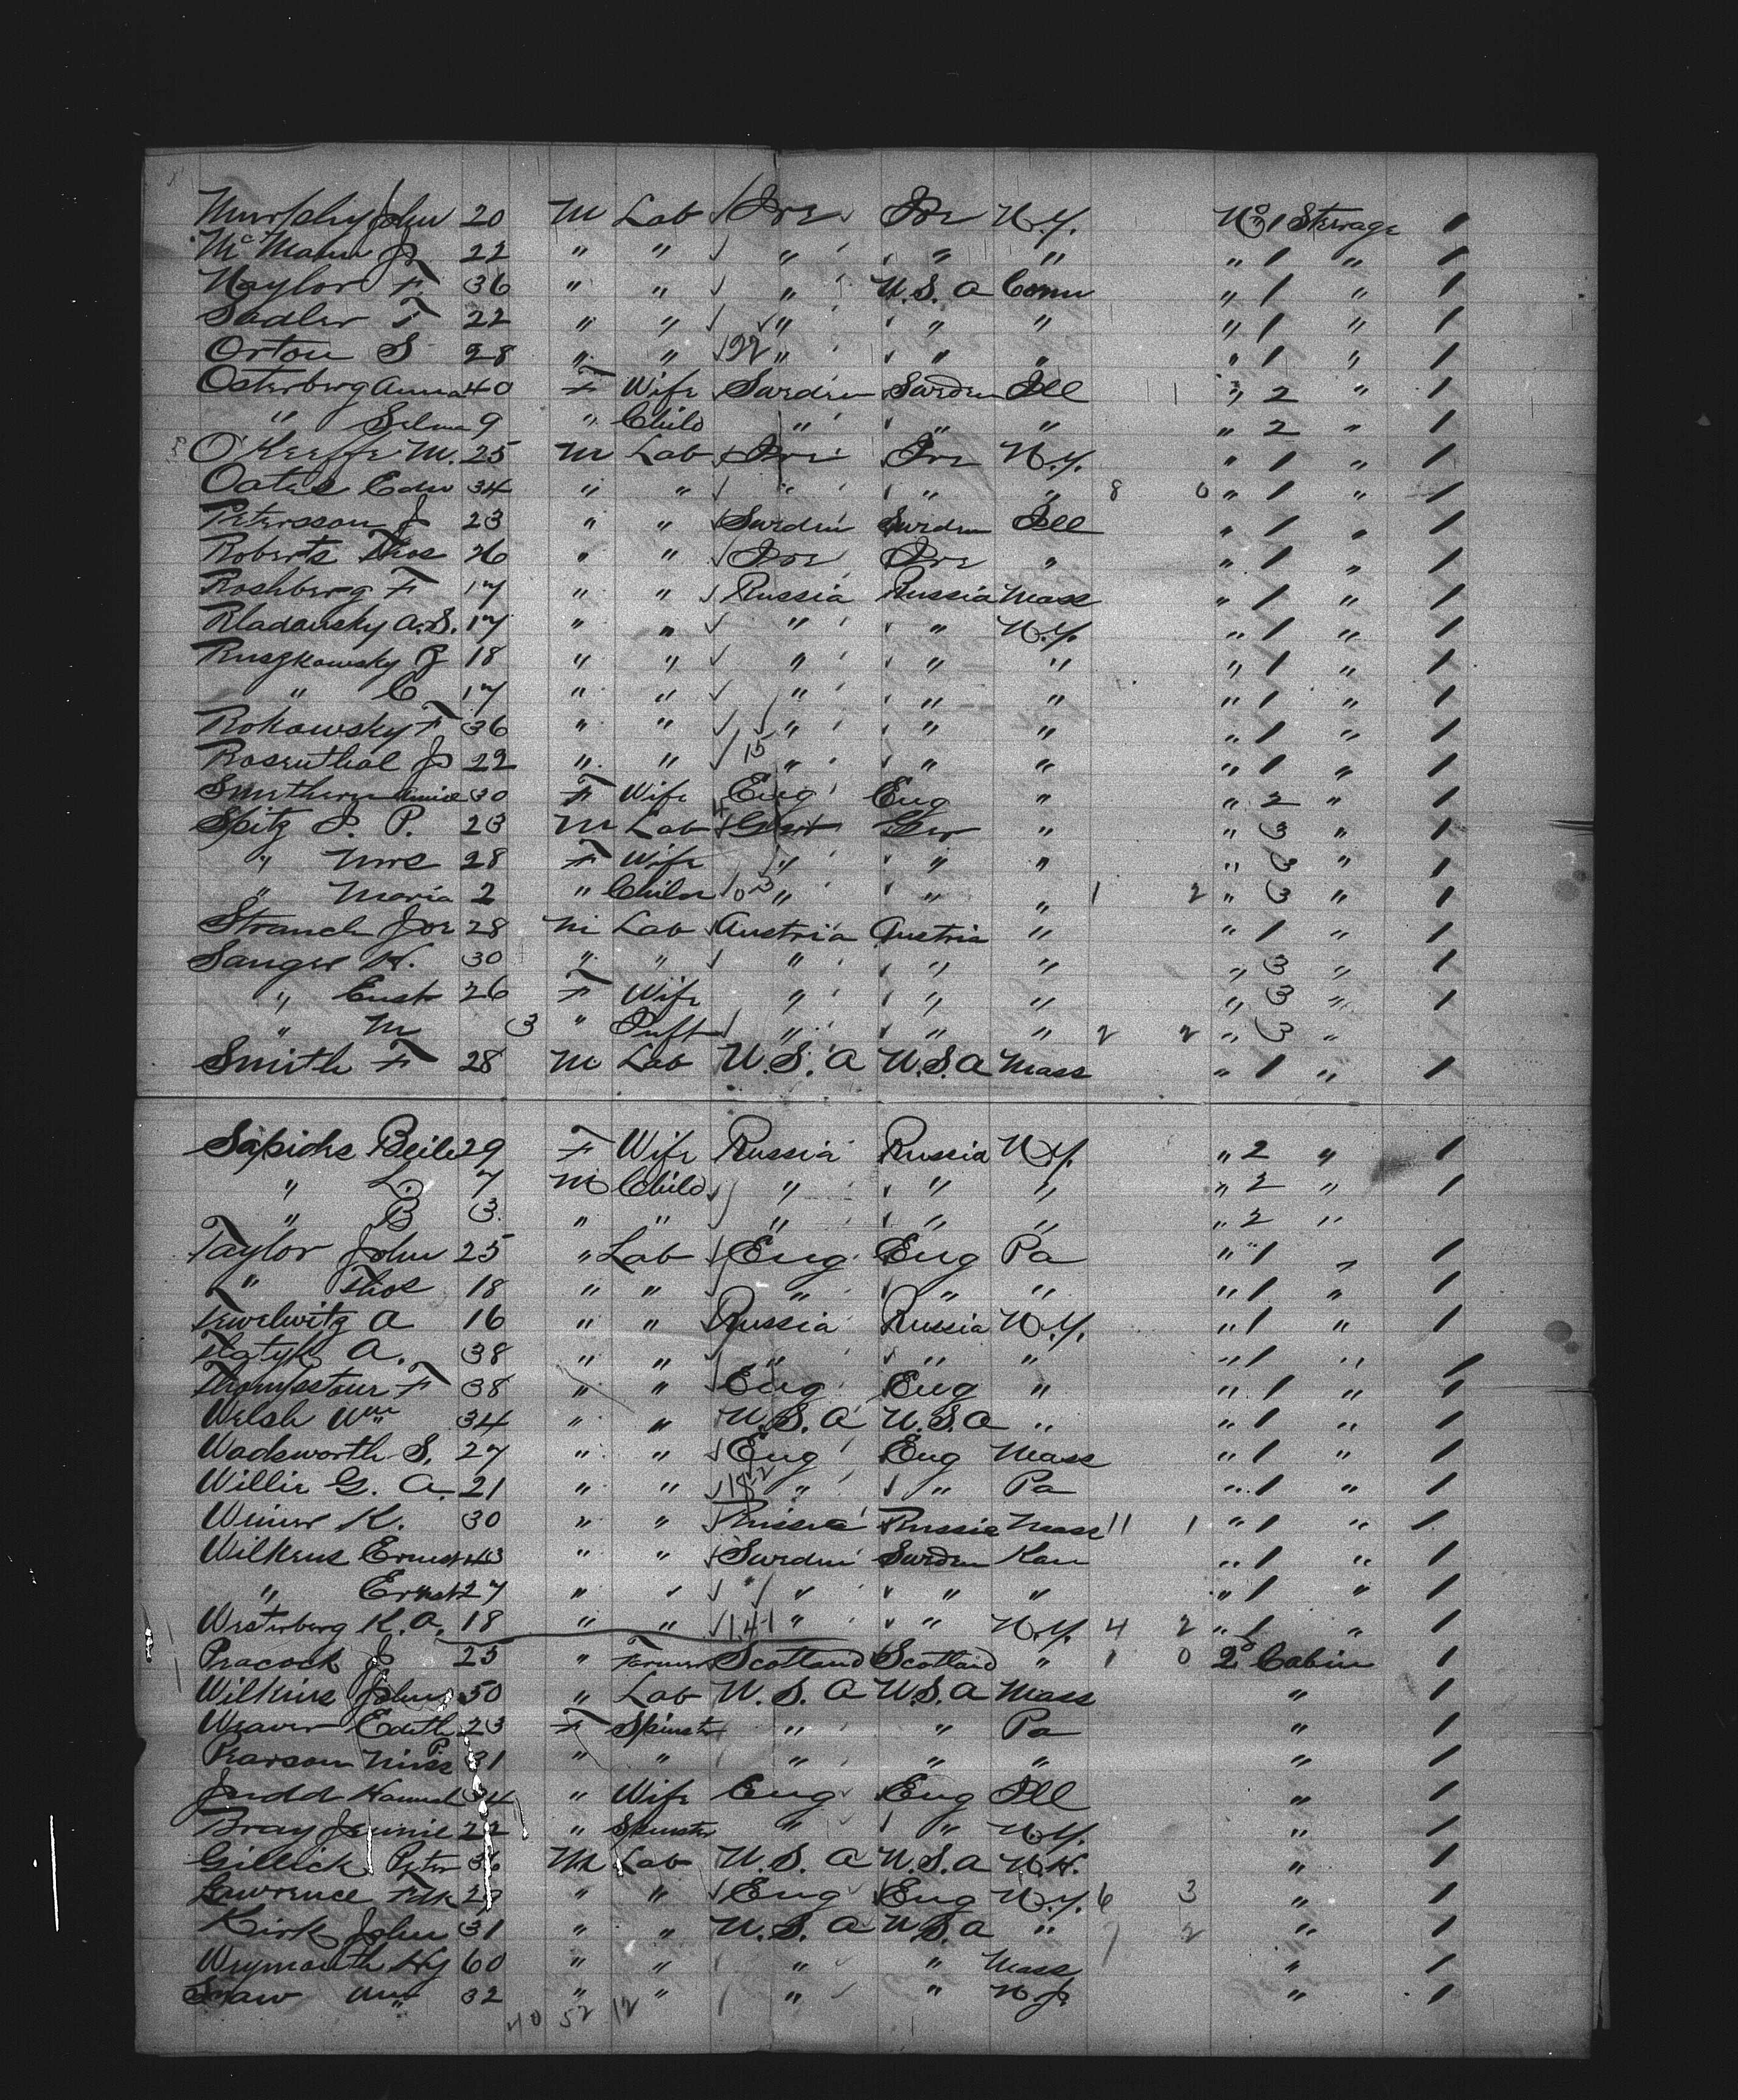 Murphy John 20 M Lab Ire Ire N.Y. No 1 Steerage 1
McMann J 22 " " " " " " 1 " 1
Naylor F. 36 " " " U.S.A Conn " 1 " 1
Sadler T 22 " " " " " " 1 " 1
Orton S 28 " " 22 " " " " 1 " 1
Osterberg Anna 40 F Wife Sweden Sweden Ill " 2 " 1
" Selma 9 " Child " " " " 2 " 1
O'Keeffe M. 25 M Lab Ire Ire N.Y. " 1 " 1
Oates Edw 34 " " " " " 8 0 " 1 " 1
Petersson J 23 " " Sweden Sweden Ill " 1 " 1
Roberts Thos 26 " " Ire Ire " " 1 " 1
Roshberg F 17 " " Russia Russia Mass " 1 " 1
Rladansky A.S. 17 " " " " N.Y. " 1 " 1
Ruszkowsky J 18 " " " " " " 1 " 1
" C 17 " " " " " " 1 " 1
Rokowsky F 36 " " " " " " 1 " 1
Rosenthal J 22 " " 15 " " " " 1 " 1
Smithern Annie 30 F Wife Eng Eng " " 2 " 1
Spitz J. P. 23 M Lab Ger Ger " " 3 " 1
" Mrs 28 F Wife " " " " 3 " 1
" Maria 2 " Child 03 " " " 1 2 " 3 " 1
Strauch Joe 28 M Lab Austria Austria " " 1 " 1
Sanger K. 30 " " " " " " 3 " 1
" Ernst 26 F Wife " " " " 3 " 1
" M 3 " Inft " " " 2 2 " 3 "
Smith F 28 M Lab U.S.A U.S.A Mass " 1 " 1
Sapichs Beile 29 F Wife Russia Russia N.Y. " 2 " 1
" L. 7 M Child " " " " 2 " 1
" B 3 " " " " " " 2 "
Taylor John 25 " Lab Eng Eng Pa " 1 " 1
" Thos 18 " " " " " " 1 " 1
A 16 " " Russia Russia N.Y. " 1 " 1
A. 38 " " " " " " 1 " 1
F 38 " " Eng Eng " " 1 " 1
Welsh Wm 34 " " U.S.A U.S.A " " 1 " 1
Wadsworth S. 27 " " Eng Eng Mass " 1 " 1
Willie G. A. 21 " " " " Pa " 1 " 1
Weiner K. 30 " " Russia Russia Mass 11 1 " 1 " 1
Wilkens Ernest 43 " " Sweden Sweden Kan " 1 " 1
" Ernst 27 " " " " " " 1 " 1
Westerberg K.A. 18 " " 141 " " N.Y. 4 2 " 1 " 1
Peacock J 25 " Farmer Scotland Scotland " 1 0 2o Cabin 1
Wilkins John 50 " Lab U.S.A U.S.A Mass " 1
Weaver Edith 23 F Spinster " " Pa " 1
Pearson Miss P 31 " " " " " " 1
Judd Hannah 34 " Wife Eng Eng Ill " 1
Bray Jennie 22 " Spinster " " N.Y. " 1
Gillick Peter 36 M Lab U.S.A U.S.A N.H. " 1
Lawrence Fdk 29 " " Eng Eng N.Y. 6 3 " 1
Kirk John 31 " " U.S.A U.S.A " 7 2 " 1
Weymouth Hy 60 " " " " Mass " 1
Shaw Wm 32 " " " " N.J. " 1
40 52 12